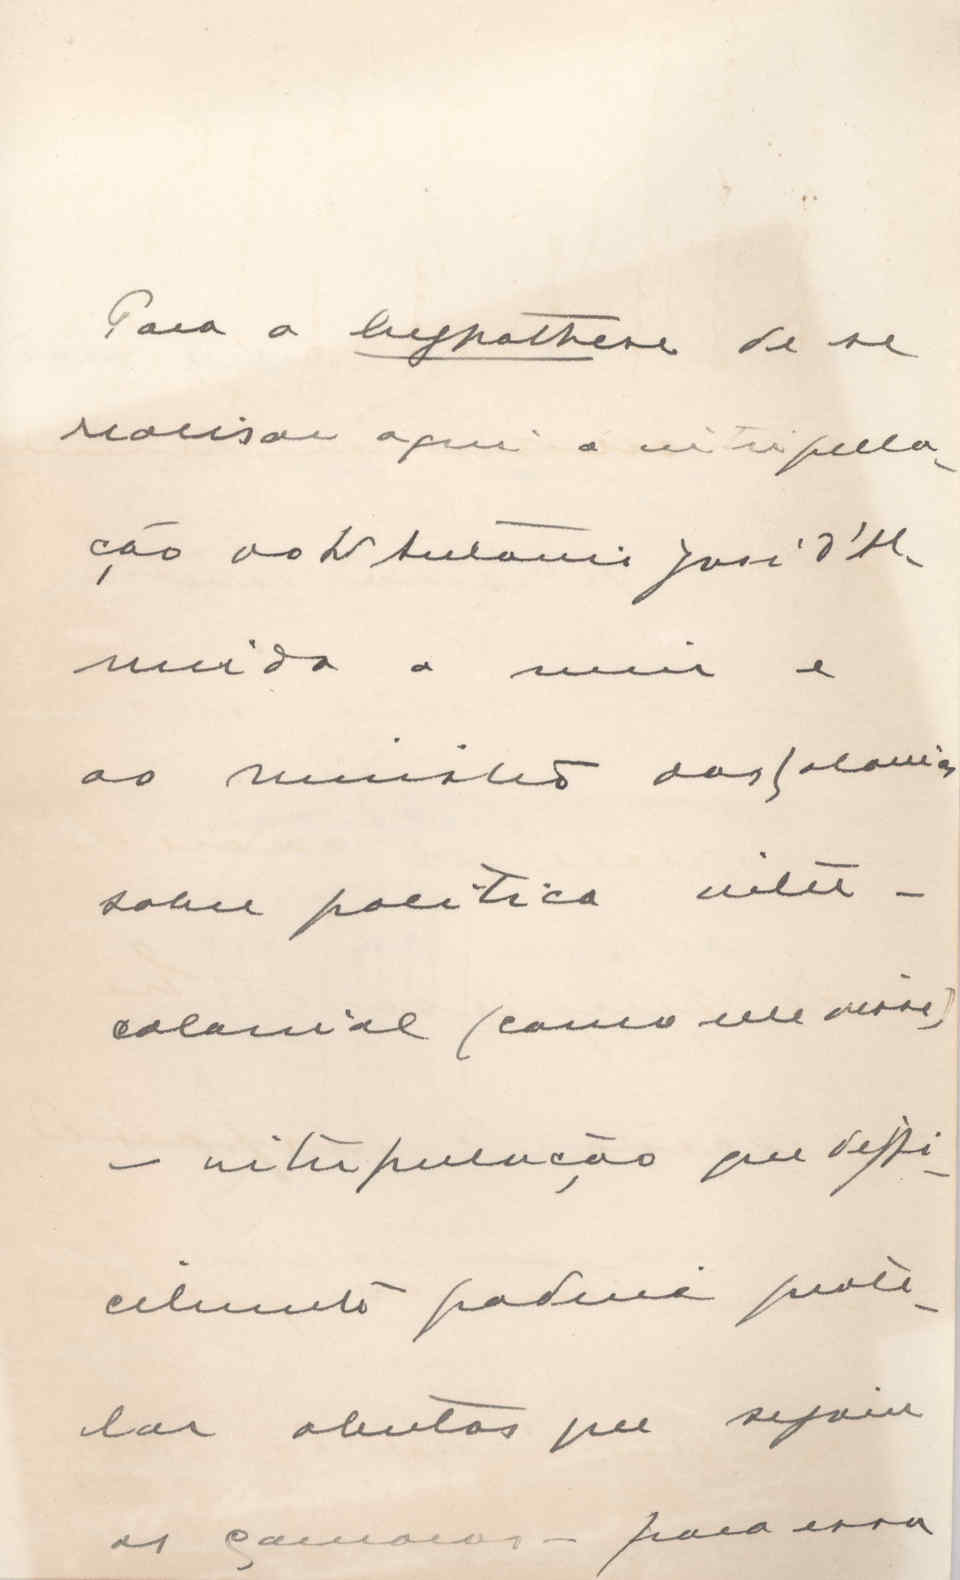 Para a hypothese de se
realisar aqui a interpella-
ção do Dr Antonio José d'Al-
meida a mim e
ao ministro das Colonias
sobre politica inter-
colonial (como elle disse)
- interpellação que deffi-
cilmente poderei prote-
lar abertas que sejam
as Camaras - para essa